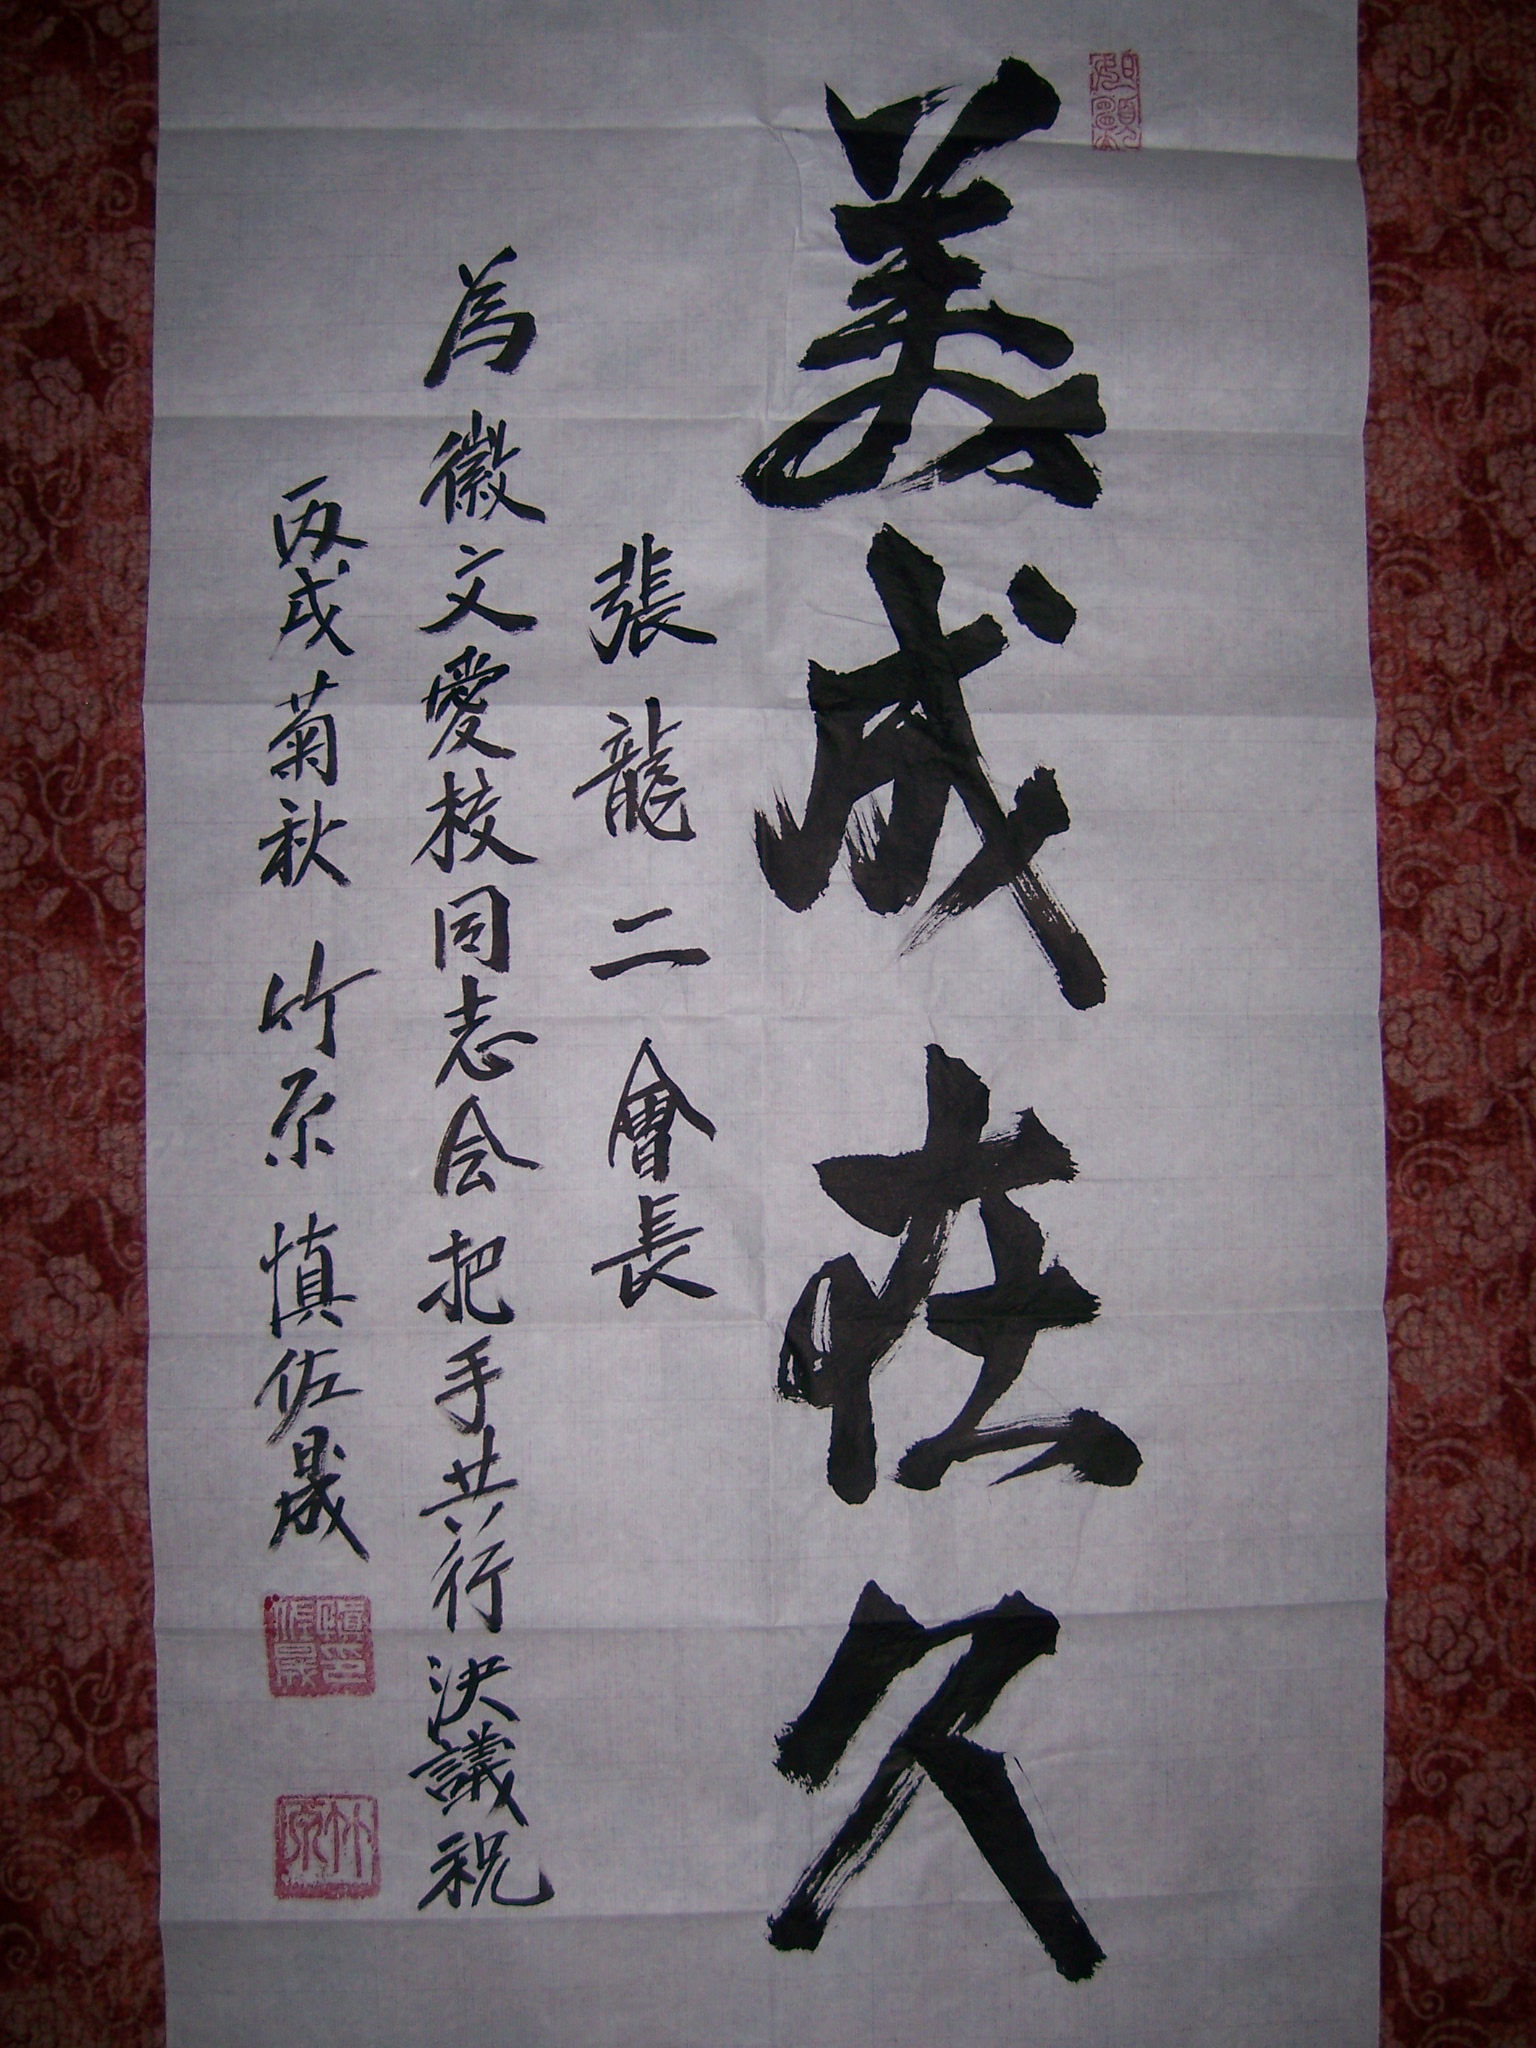 美成在久
張龍二會長
為徽文愛校同志会把手共行決議祝
丙戌菊秋 竹原 慎佐晟
慎印佐晟
竹原